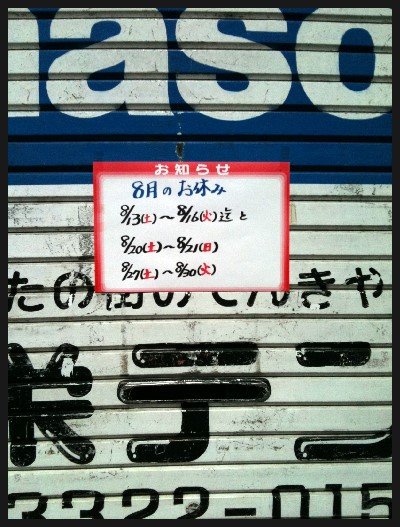 naso
お知らせ
8月のお休み
8/13(土)〜8/16(火)迄と
8/20(土)〜8/21(日)
8/27(土)〜8/30(火)
たの街のでんきや
デン
3322-015